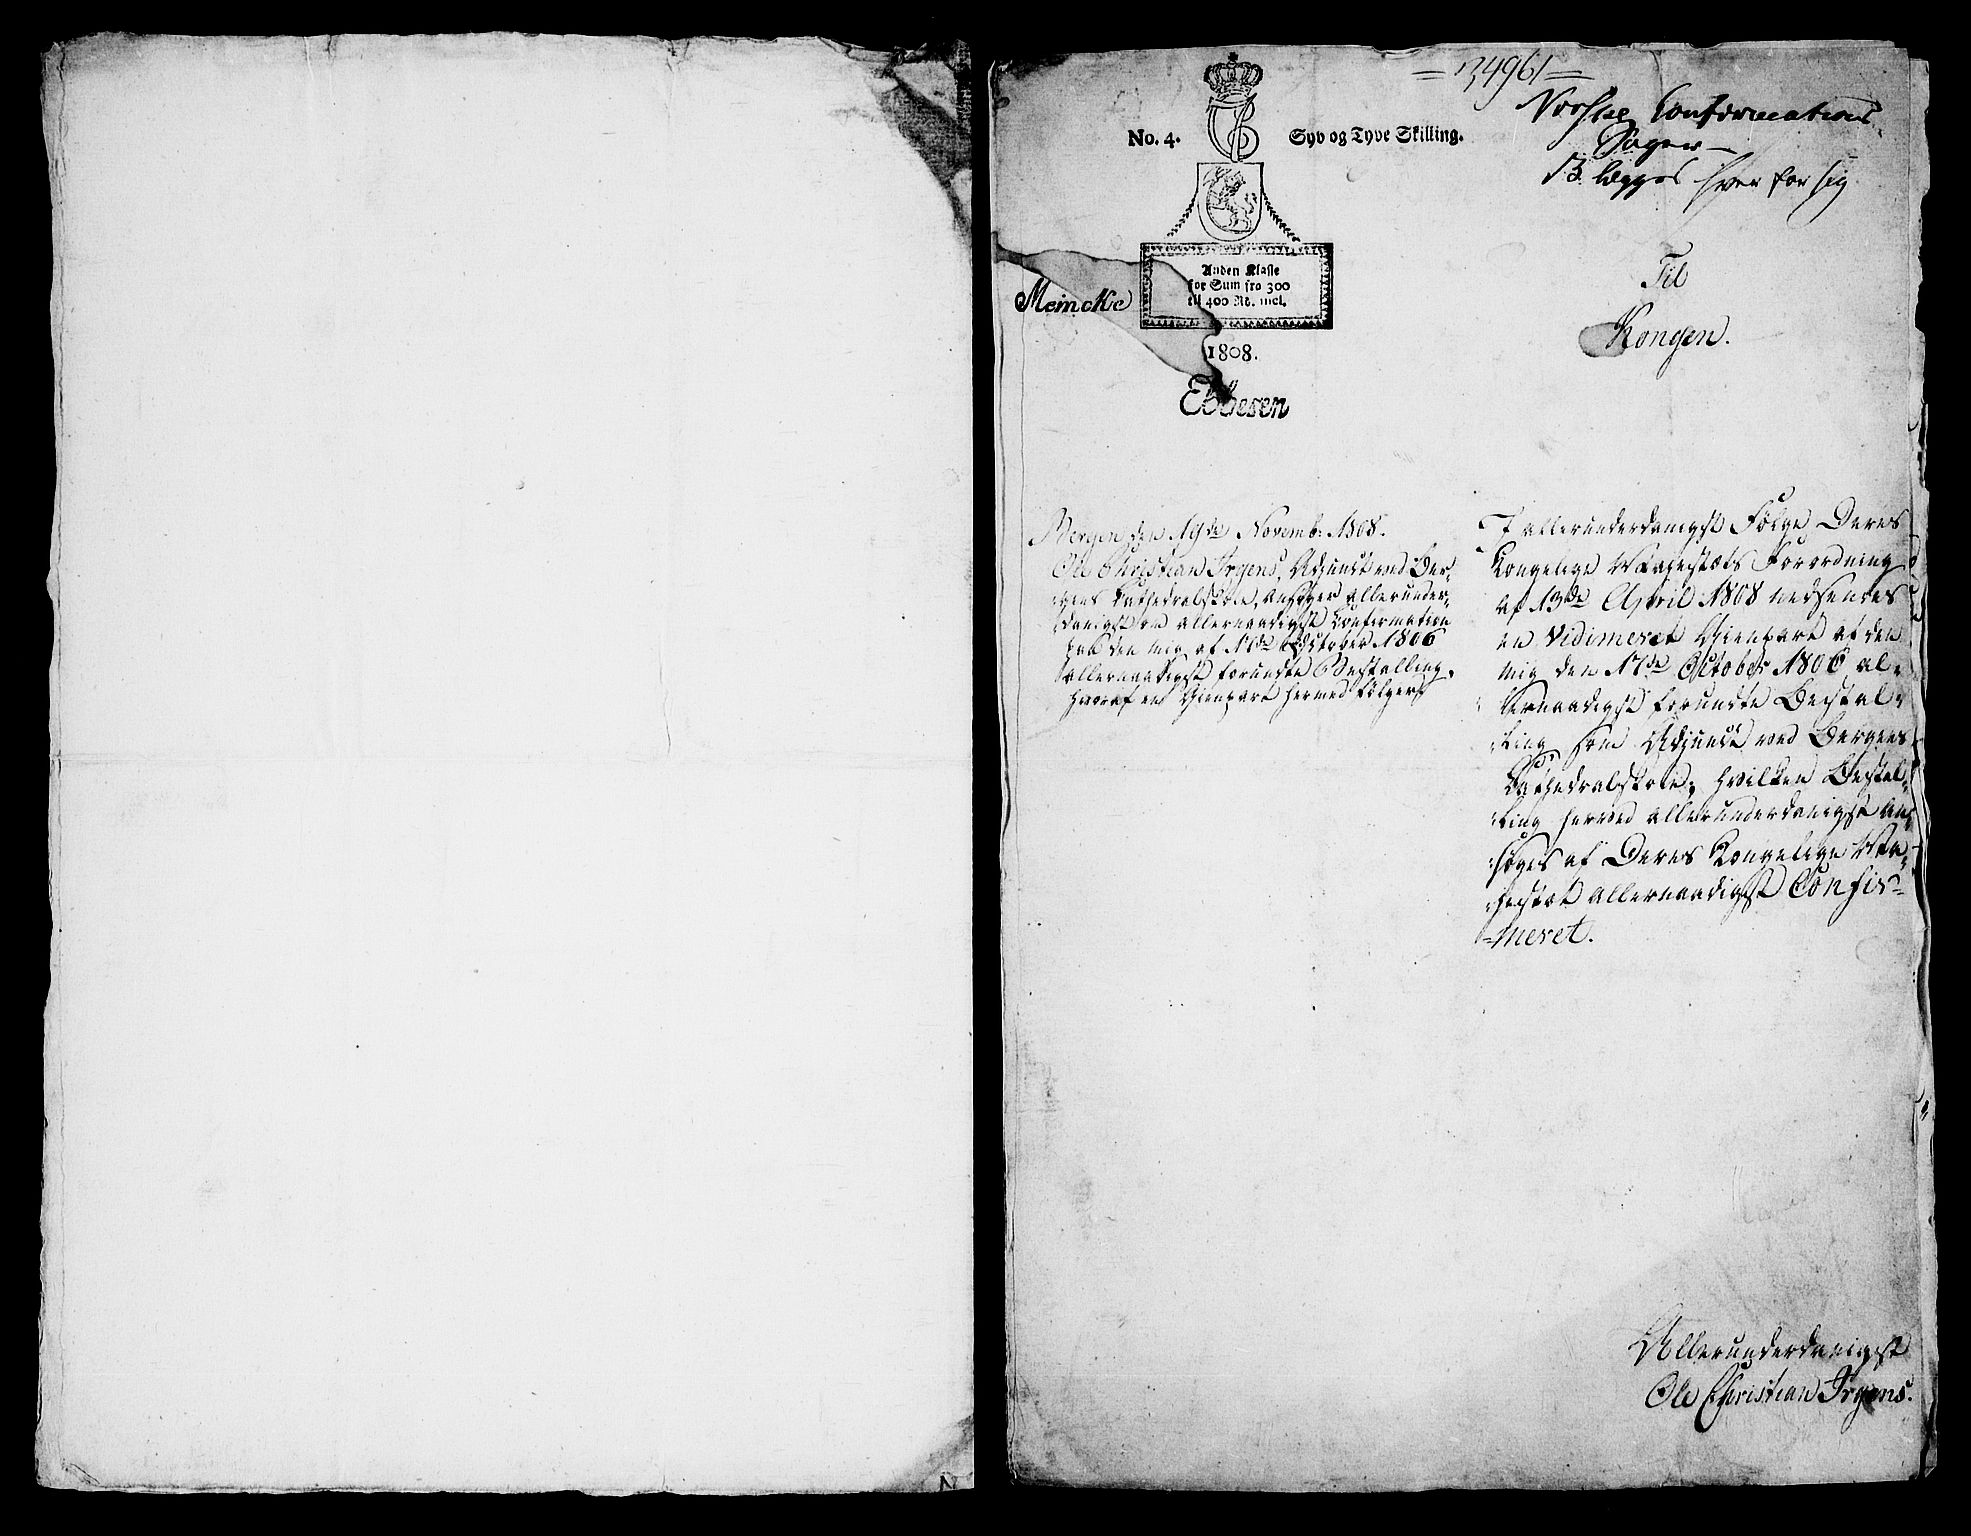 =13496/=
Norske Confirmations
Sager
B. lægges hver for sig
No. 4.
Syv og Tyve Skilling.
Anden Klasse
for Sum fra 300
til 400 Rd. incl.
Meincke
1808.
Ebbesen
Til
Kongen.
Bergen den 19de Novemb: 1808.
Ole Christian Irgens, Adjunct ved Ber-
gens Cathedralskole, ansøger allerunder-
danigst om allernaadigst Confirmation
paa den mig af 17de October 1806
allernaadigst forundte Bestalling,
hvoraf en Gienpart hermed følger.
I allerunderdanigst Følge Deres
Kongelige Majestæts Forordning
af 13de April 1808 nedsendes
en vidimeret Gienpart af den
mig den 17de October 1806 al-
lernaadigst forundte Bestal-
ling som Adjunct ved Bergens
Cathedralskole, hvilken Bestal-
ling herved allerunderdanigst an-
søges af Deres Kongelige Ma-
jestæt allernaadigst Confir-
meret.
Allerunderdanigst
Ole Christian Irgens.